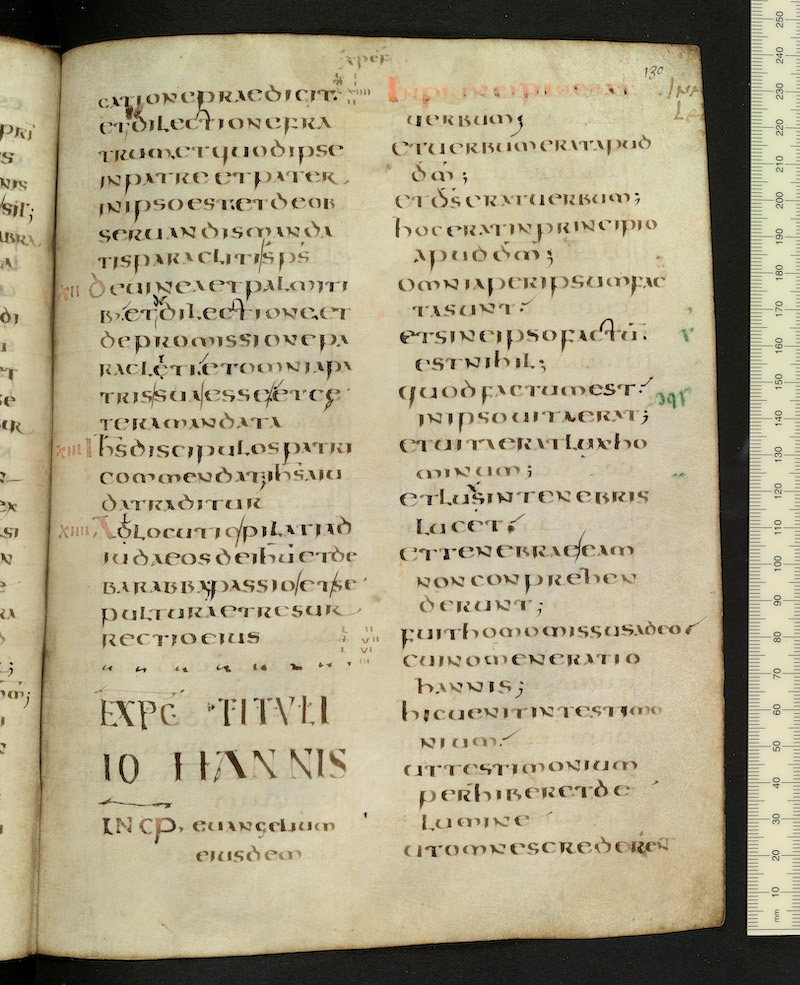 130
CATIONE PRAEDICIT.
ET DILECTIONE FRA
TRUM. ET QUOD IPSE
IN PATRE ET PATER
IN IPSO EST. ET DE OB
SERUANDIS MANDA
TIS PARACLITI SPS
XII DE UINEA ET PALMITI
B. ET DILECTIONE. ET
DE PROMISSIONE PA
RACLETI. ET OMNIA PA
TRIS SUA ESSE ET CE
TERA MANDATA
XIII IHS DISCIPULOS PATRI
COMMENDAT IHS A IU
DA TRADITUR
XIIII ADLOCUTIO PILATI AD
IUDAEOS DE IHU ET DE
BARABBA PASSIO ET SE
PULTURA ET RESUR
RECTIO EIUS
EXPC TITULI
IOHANNIS
INCP, EUANGELIUM
EIUSDEM
IN PRINCIPIO ERAT
UERBUM;
ET UERBUM ERAT APUD
DM;
ET DS ERAT UERBUM;
HOC ERAT IN PRINCIPIO
APUD DM;
OMNIA PER IPSUM FAC
TA SUNT.
ET SINE IPSO FACTU.
EST NIHIL;
QUOD FACTUM EST.
IN IPSO UITA ERAT;
ET UITA ERAT LUX HO
MINUM;
ET LUX IN TENEBRIS
LUCET.
ET TENEBRAE EAM
NON CONPREHEN
DERUNT;
FUIT HOMO MISSUS A DEO
CUI NOMEN ERAT IO
HANNIS;
HIC UENIT IN TESTIMO
NIUM.
UT TESTIMONIUM
PERHIBERET DE
LUMINE
UT OMNES CREDEREN